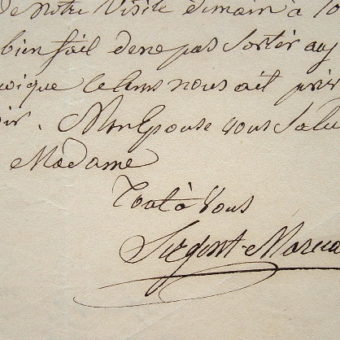 de Notre Visite demain à 10
bien fait de ne pas sortir auj
quoique le tems nous ait priv
oir. Mon Epouse vous salu
Madame
Tout à Vous
Sergent-Marcea